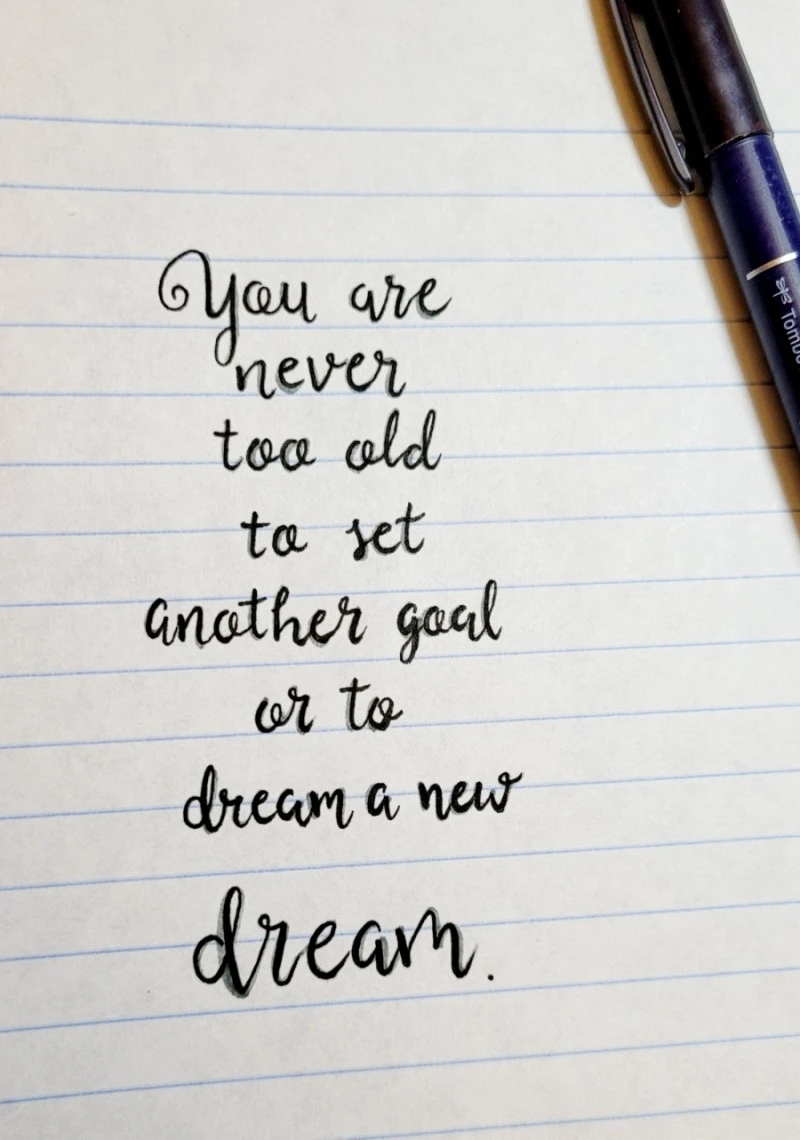 You are
never
too old
to set
another goal
or to
dream a new
dream.